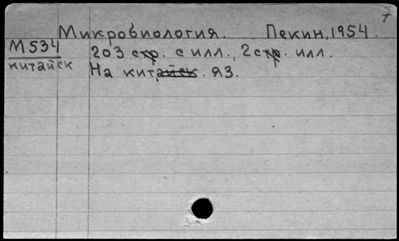 Микробиология. Пекин, 1954.
М534 203 стр. с илл., 2 стр. илл.
китайск На китайск. яз.